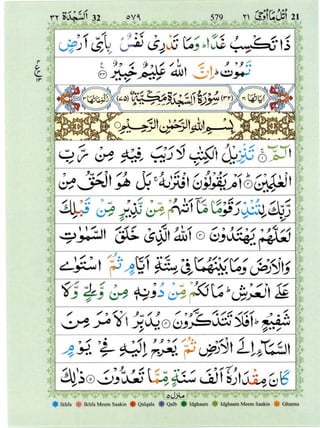 ٣٢ السَّجْدَة 32 ٥٧٩ 579 ٢١ اُتْلُ مَآ اُوْحِیَ 21
ذَا تَكْسِبُ غَدًا ؕ وَمَا تَدْرِیْ نَفْسٌۢ بِاَیِّ اَرْضٍ
تَمُوْتُ ؕ اِنَّ اللّٰهَ عَلِیْمٌ خَبِیْرٌ
اٰیَاتُهَا ٣٠ (٣٢) سُوْرَةُ السَّجْدَةِ مَكِّیَّةٌ (٧٥) رُكُوْعَاتُهَا ٣
بِسْمِ اللّٰهِ الرَّحْمٰنِ الرَّحِیْمِ
الٓمّٓ ۚ تَنْزِیْلُ الْكِتٰبِ لَا رَیْبَ فِیْهِ مِنْ رَّبِّ
الْعٰلَمِیْنَ ؕ اَمْ یَقُوْلُوْنَ افْتَرٰىهُ ۚ بَلْ هُوَ الْحَقُّ مِنْ
رَّبِّكَ لِتُنْذِرَ قَوْمًا مَّاۤ اَتٰىهُمْ مِّنْ نَّذِیْرٍ مِّنْ قَبْلِكَ
لَعَلَّهُمْ یَهْتَدُوْنَ اَللّٰهُ الَّذِیْ خَلَقَ السَّمٰوٰتِ
وَالْاَرْضَ وَمَا بَیْنَهُمَا فِیْ سِتَّةِ اَیَّامٍ ثُمَّ اسْتَوٰی
عَلَی الْعَرْشِ ؕ مَا لَكُمْ مِّنْ دُوْنِهٖ مِنْ وَّلِیٍّ وَّلَا
شَفِیْعٍ ؕ اَفَلَا تَتَذَكَّرُوْنَ یُدَبِّرُ الْاَمْرَ مِنَ
السَّمَآءِ اِلَی الْاَرْضِ ثُمَّ یَعْرُجُ اِلَیْهِ فِیْ یَوْمٍ
كَانَ مِقْدَارُهٗۤ اَلْفَ سَنَةٍ مِّمَّا تَعُدُّوْنَ ذٰلِكَ
منزل ٥
Ikhfa Ikhfa Meem Saakin Qalqala Qalb Idghaam Idghaam Meem Saakin Ghunna